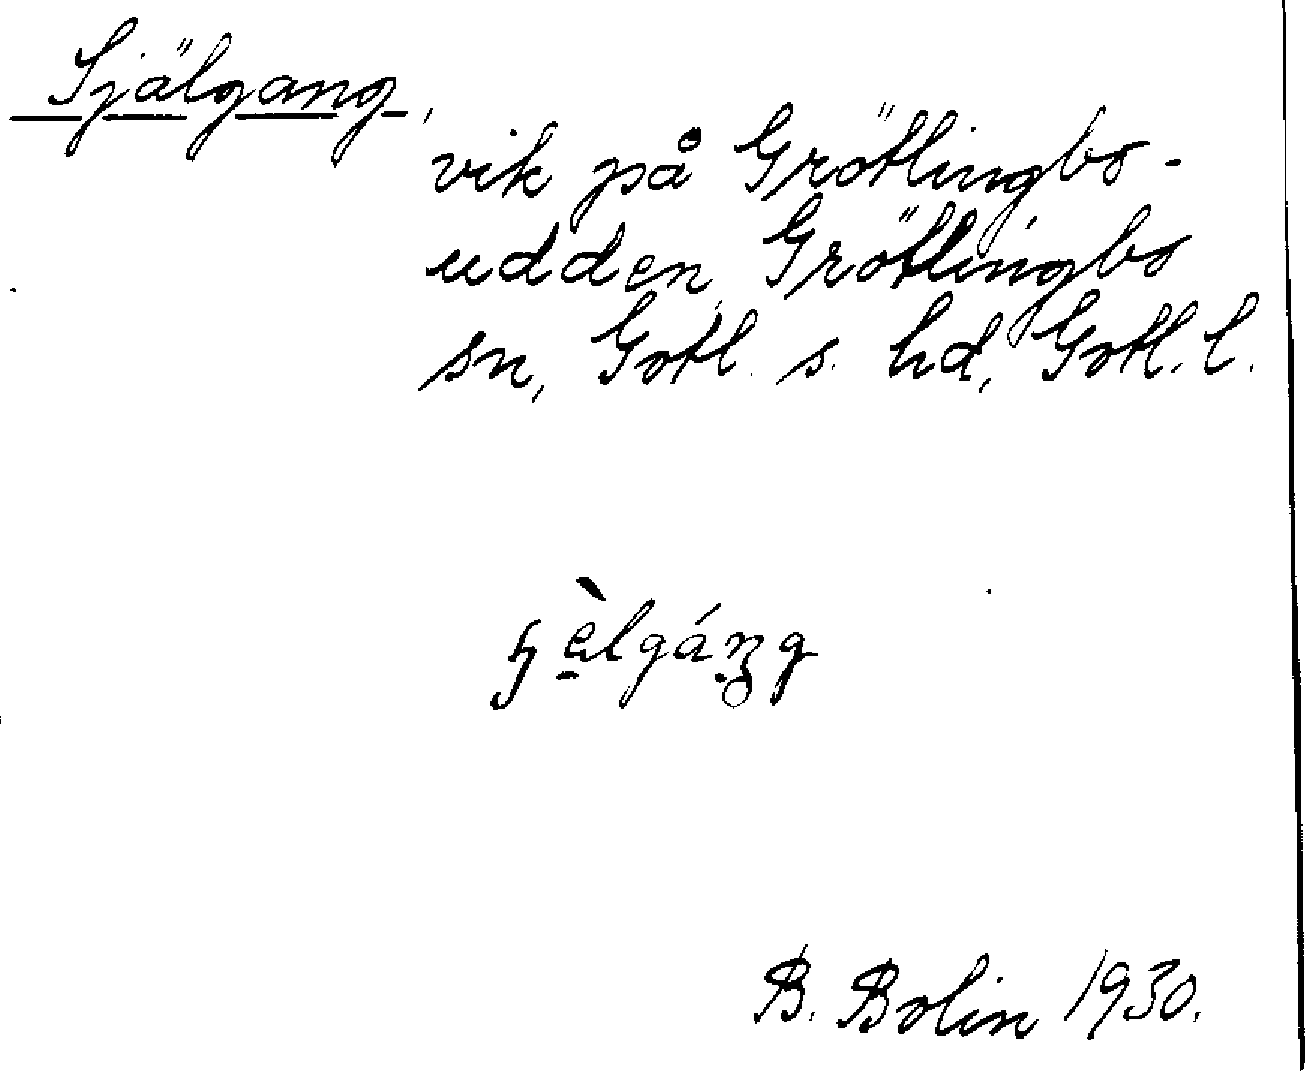 Själgang,
vik på Grötlingbo-
udden, Grötlingbo
sn, Gotl. s. hd, Gotl. l.
B. Bolin 1930.